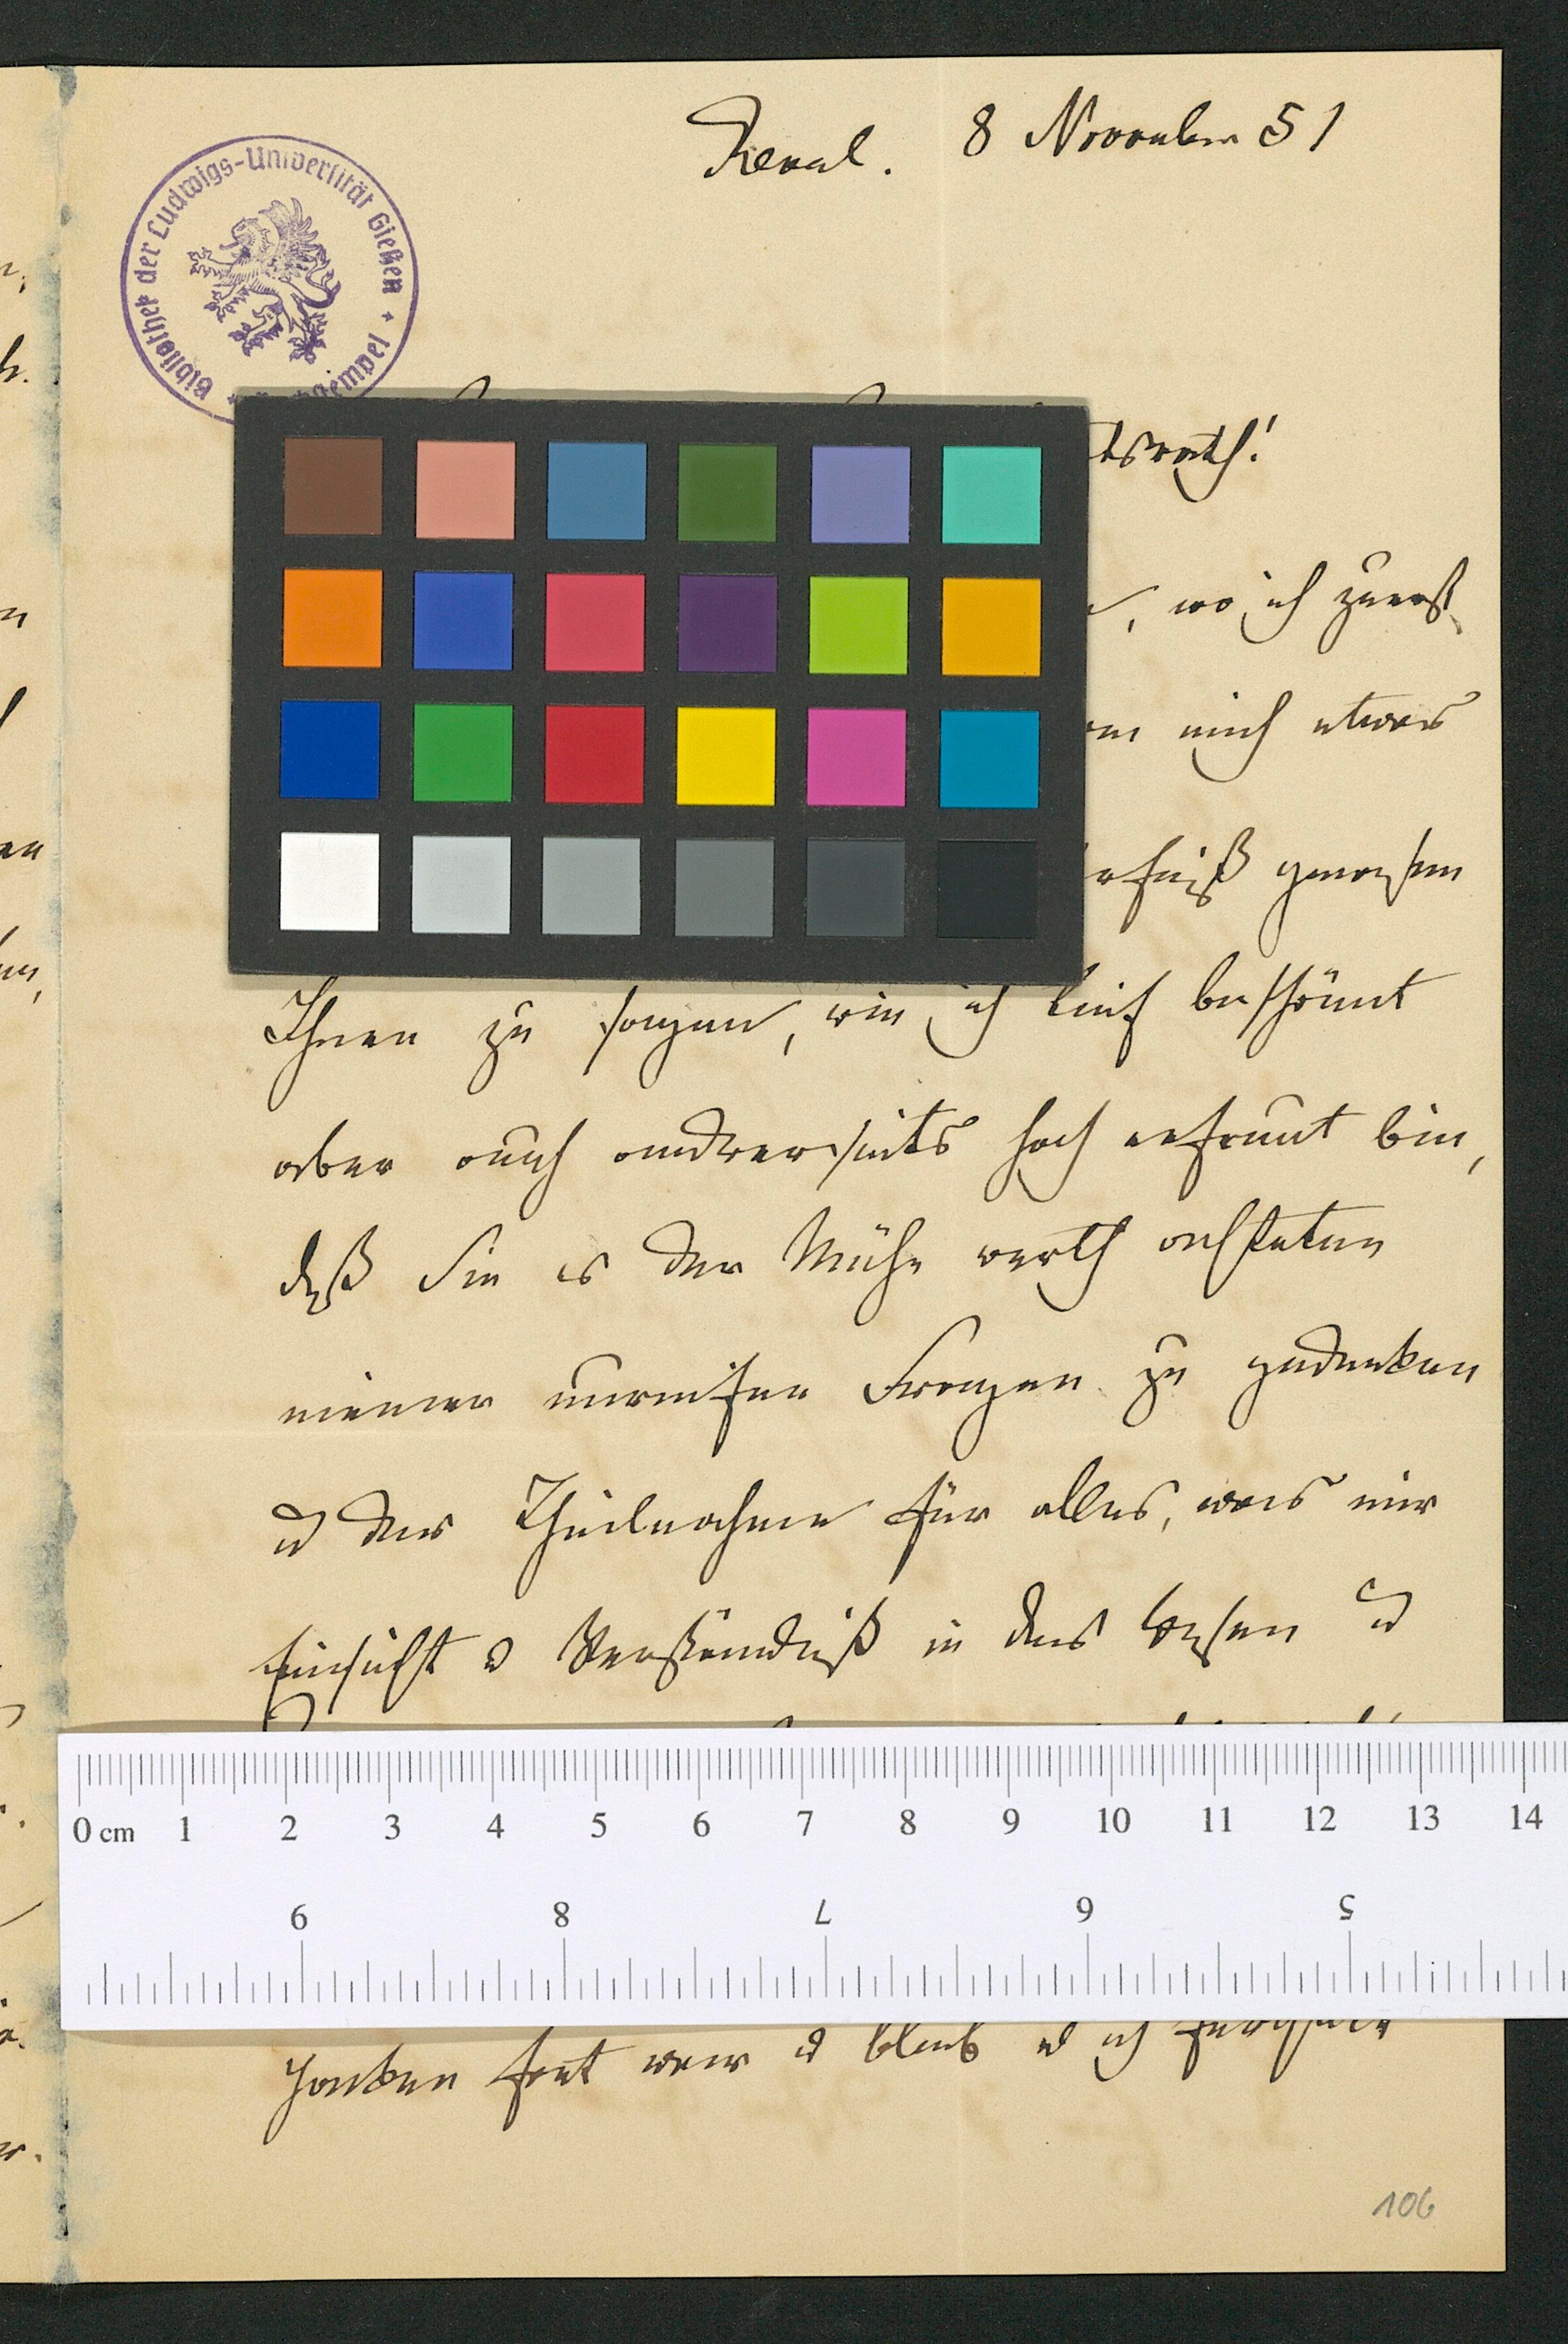 Reval. 8 November 51
Bibliothek der Ludwigs-Universität Gießen
tsrath!
, wo ich zuerst
mich etwas
gewesen
Ihnen zu sagen, wie ich tief beschämt
aber auch andrerseits hoch erfreut bin,
daß Sie es der Mühe werth achteten
meiner unreifen Fragen zu gedenken
u der Theilnahme für alles, was mir
Einsicht u Verständniß in das Wesen u
0 cm 1 2 3 4 5 6 7 8 9 10 11 12 13 14
9 8 7 6 5
fort war u blieb u ich
106